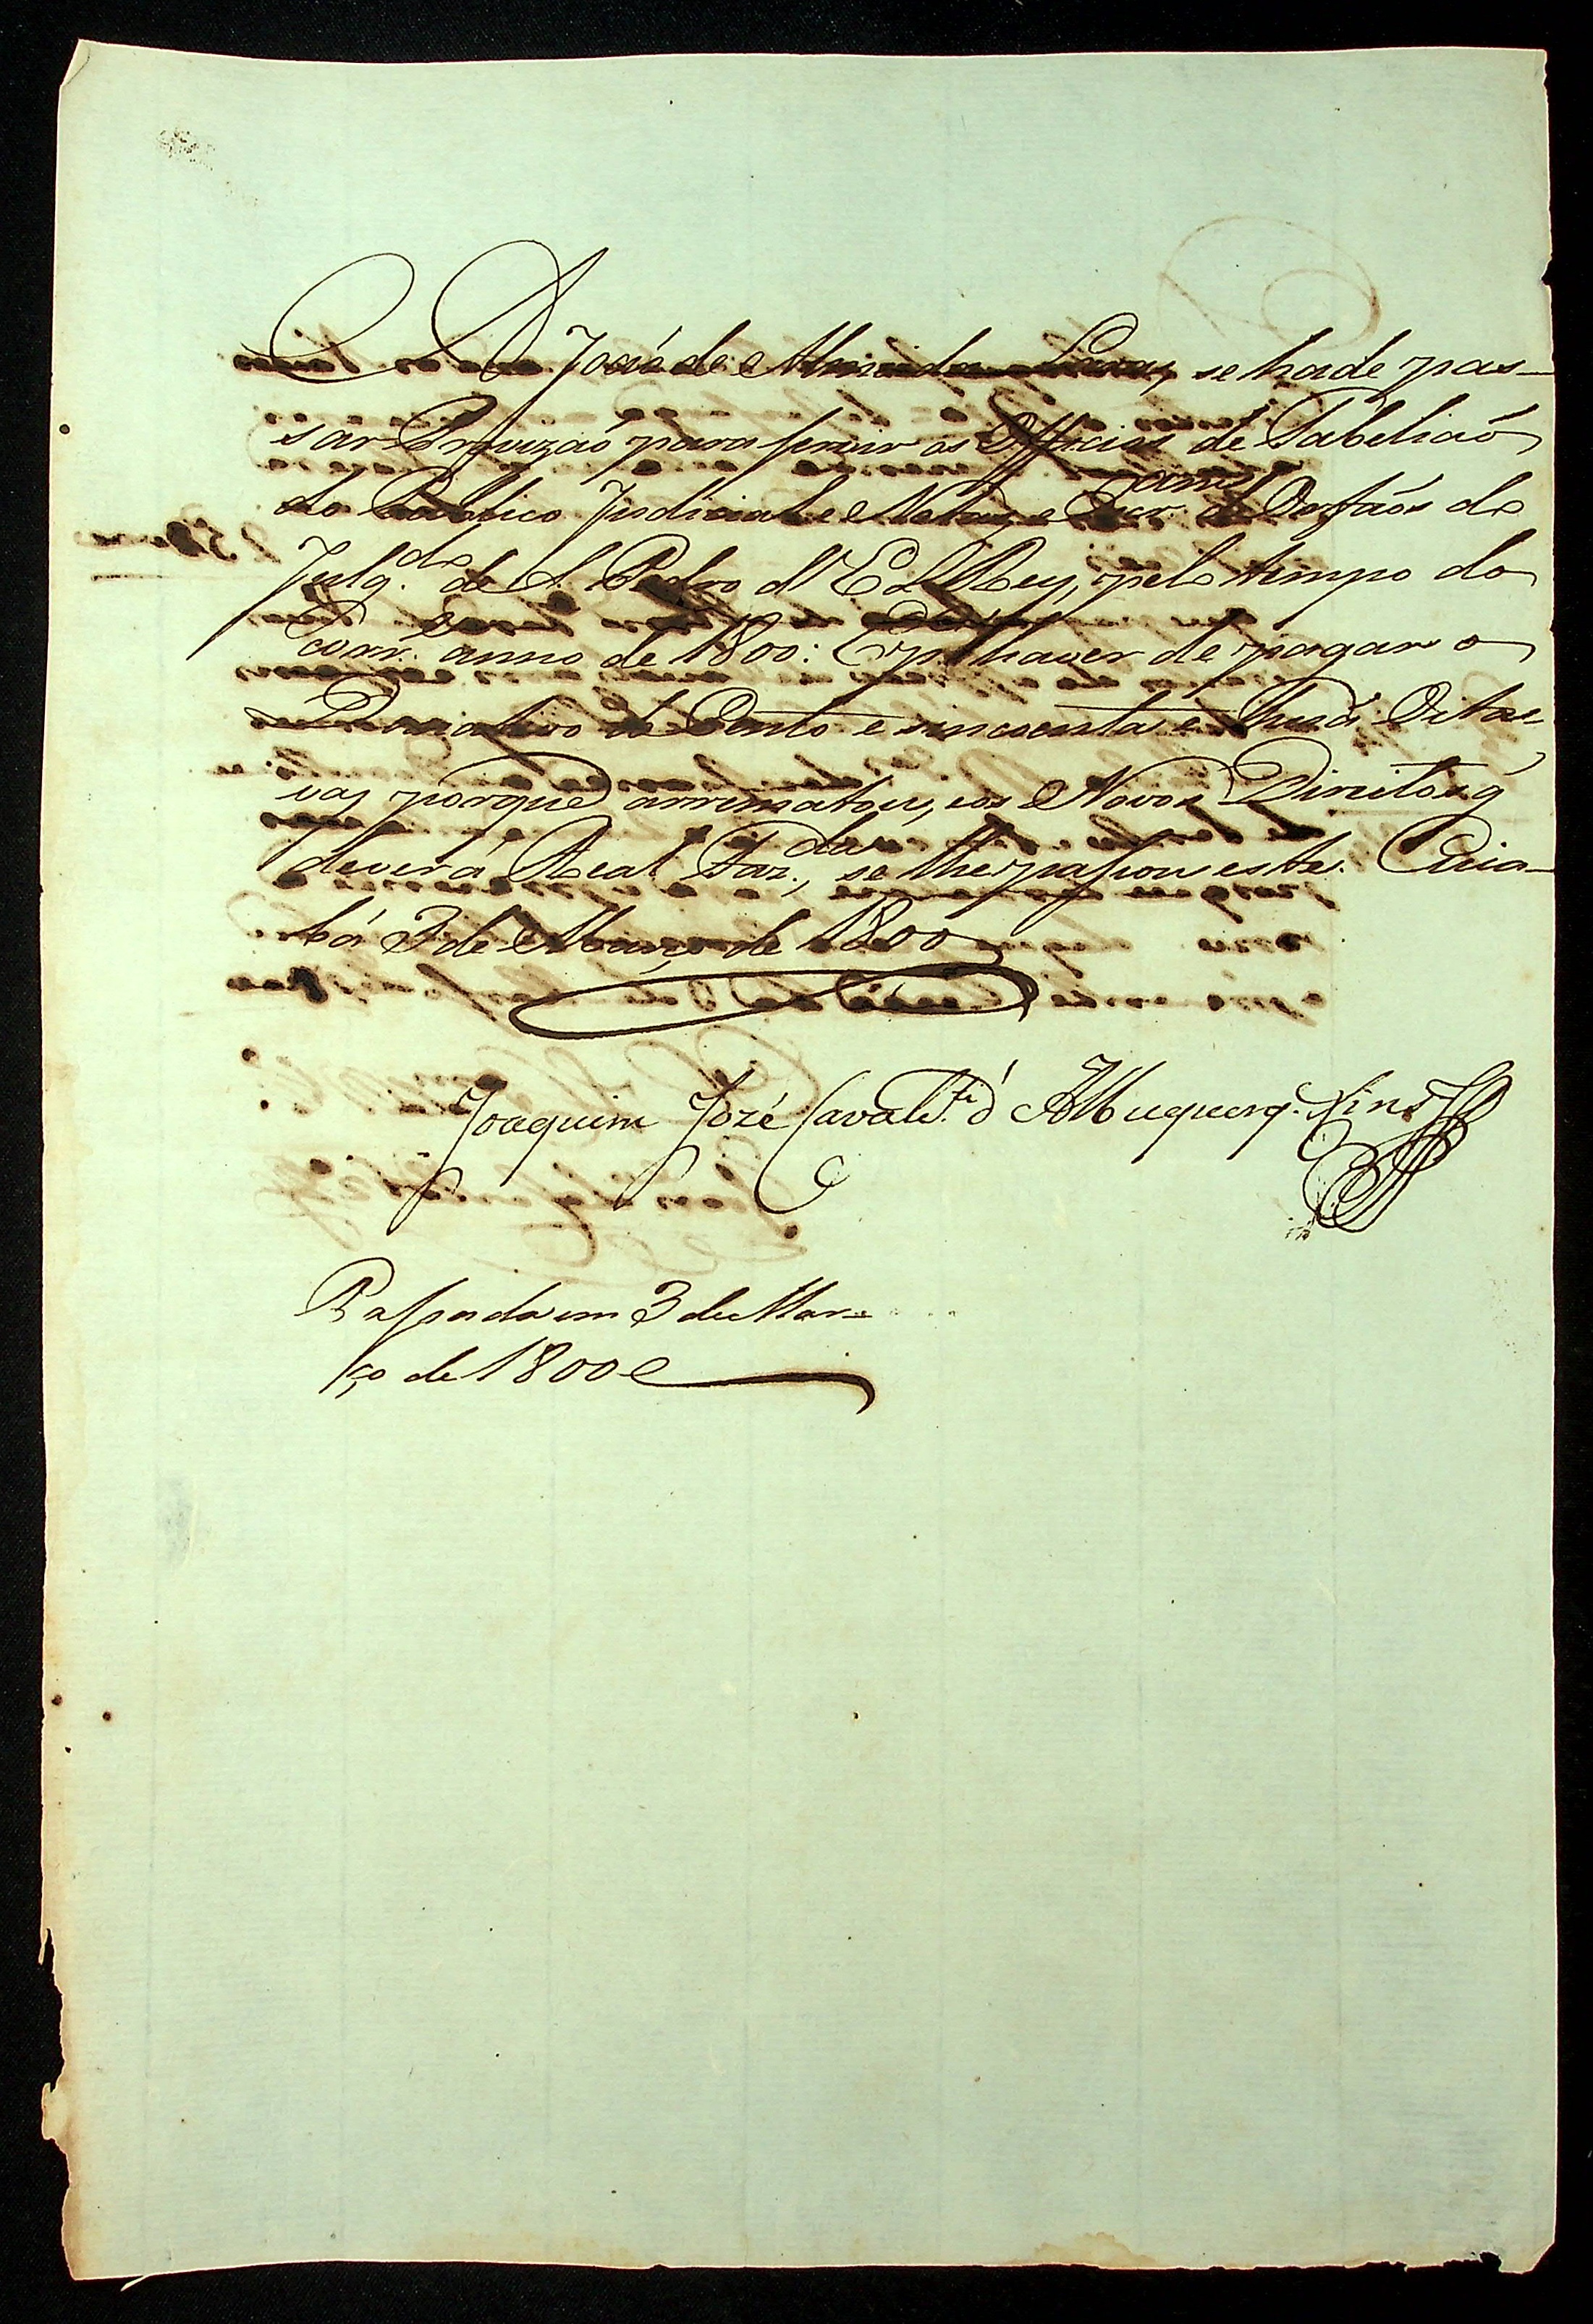 A José de Almeida Lara, se hade pas-
sar Provizaõ para servir os Officios de Tabeliaõ
do Publico Judicial e Notas, e Escr.am d'Orfaõs do
Julg.do de S. Pedro d'El Rey, pelo tempo do
corr.e anno de 1800: E p.a haver de pagar o
Donativo de Cento e sincoenta e huã Oita-
vas porque arrematou, e os Novos Direitos q'
dever á Real Faz.da, se lhe passou este. Cuia-
bá 3 de Março de 1800
Joaquim Jozé Cavalc.ti d' Albuquerq.
Passada em 3 de Mar-
ço de 1800